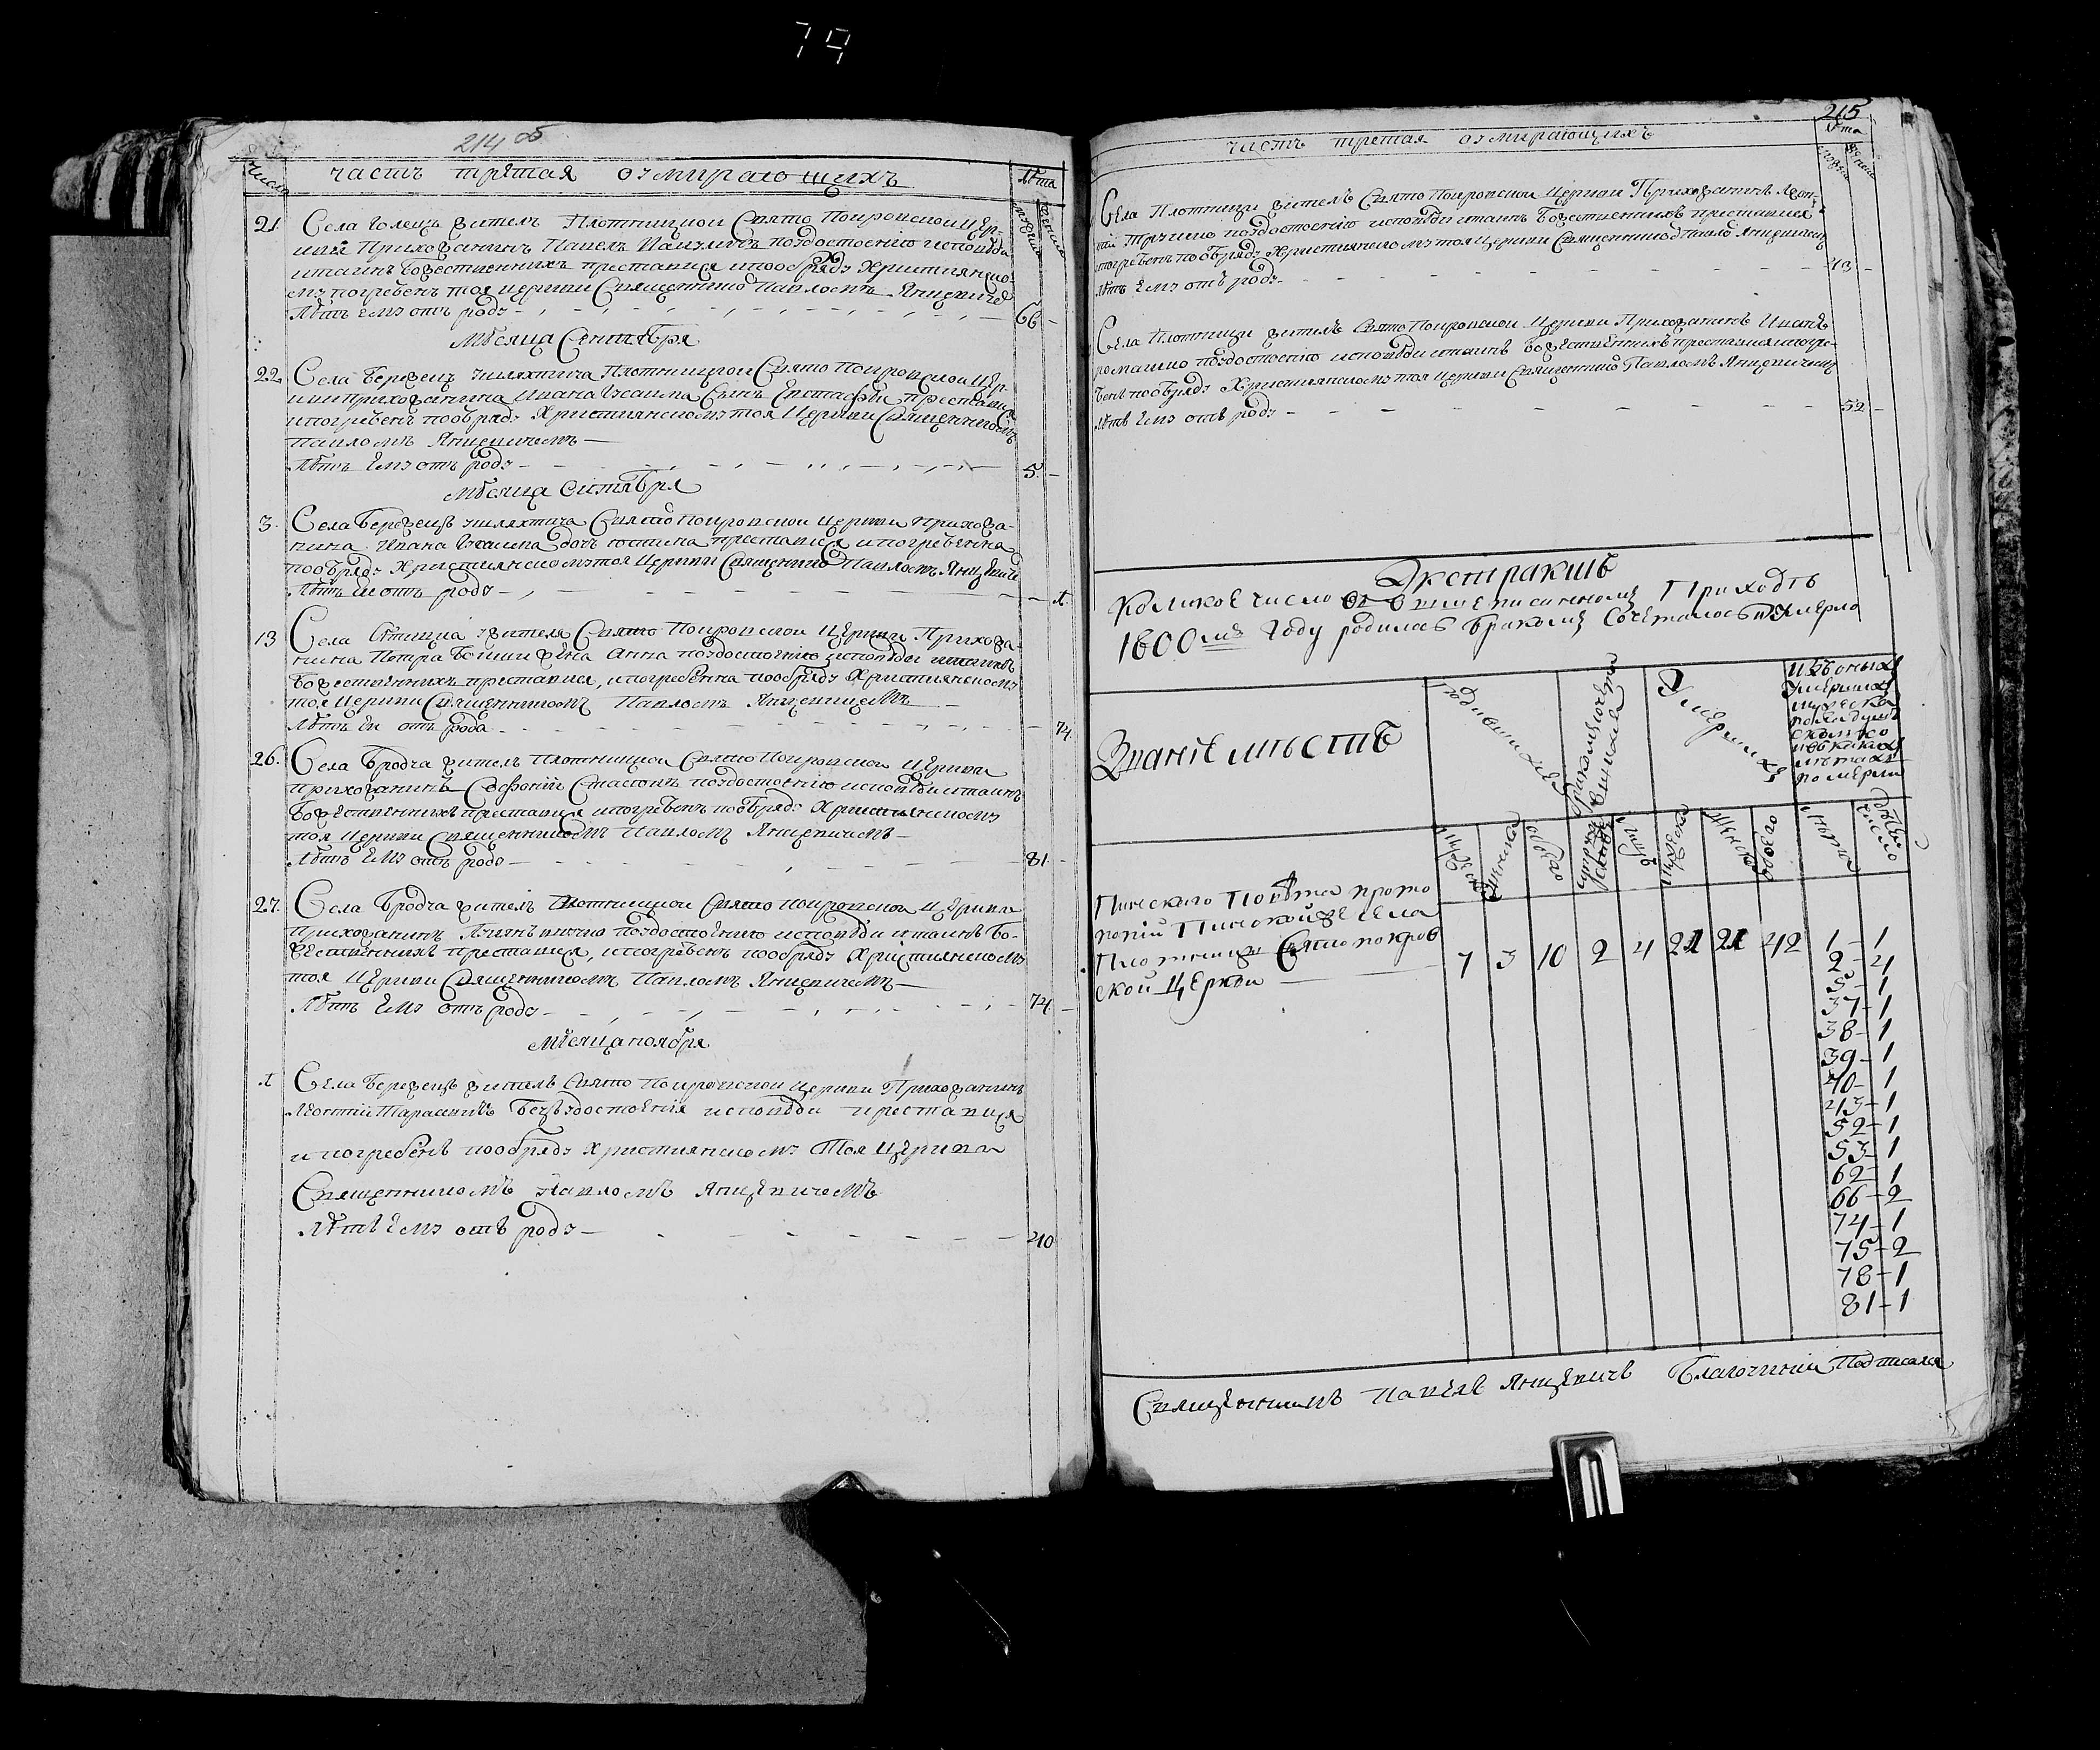 79
214 об
числа
часть третая о умирающихъ
Лѣта
мужеска
женска
21. Села Голецъ житель Плотницкой Свято Покровской Цер-
кви Прихожанинъ Павелъ поудостоенію исповѣди
итаинъ Божественнихъ преставися ипообряду Християнско-
му погребенъ тоя церкви Священнико Павломъ Янцевиче
Лѣтъ Ему отъ роду - 66 -
Мѣсяца Сентября
22 Села Бережецъ Шляхтича Плотницкой Свято Покровской Цер-
кви прихожанина Ивана Сынъ Евстафій преставися
ипогребенъ пообряду Християнскому тоя Церкви Священникомъ
Павломъ Янцевичемъ —
Лѣтъ Ему отъ роду - 5. -
Мѣсяца Октября
3. Села Бережецъ Шляхтича Свято Покровской Церкви прихожа-
нина Ивана дочь преставися ипогребенна
пообряду Християнскому тоя Церкви Священнико Павломъ Янцевиче
Лѣтъ еи отъ роду - 1.
13 Села жителя Свято Покровской Церкви Прихожа-
нина Петра жена Анна поудостоенію исповѣди итаинъ
Божественнихъ преставися, ипогребенна пообряду Християнскому
тоя Церкви Священникомъ Павломъ Янцевичемъ
Лѣтъ Еи отъ рода - 74
26. Села Бродча житель Плотницкой Свято Покровской Церкви
прихожанинъ поудостоенію исповѣди итаинъ
Божественнихъ преставися ипогребенъ пообряду Християнскому
тоя Церкви Священникомъ Павломъ Янцевичемъ —
Лѣтъ Ему отъ роду - 81 -
27. Села Бродча житель Плотницкой Свято Покровской Церкви
прихожанинъ поудостоенію исповѣди итаинъ Бо-
жественнихъ преставися, ипогребенъ пообряду Християнскому
тоя Церкви Священникомъ Павломъ Янцевичемъ —
Лѣтъ Ему отъ роду - 74 -
Мѣсяца ноября
1 Села Бережецъ житель Свято Покровской Церкви Прихожанинъ
Леонтій безъудостоенія исповѣди преставися
и погребенъ пообряду Християнскому Тоя Церкви
Священникомъ Павломъ Янцевичемъ
Лѣтъ Ему отъ роду - 40
215
часть третая о умирающихъ
Лѣта
мужеска
женска
Села Плотници житель Свято Покровской Церкви Прихожанинъ Леон-
тій поудостоенію исповѣди итаинъ Божественнихъ преставися
ипогребенъ пообряду Християнскому тоя Церкви Священнико Павло Янцевичемъ
Лѣтъ Ему отъ роду - 43 -
Села Плотници житель Свято Покровской Церкви Прихожанинъ Иванъ
поудостоенію исповѣди итаинъ Божественнихъ преставися ипогре-
бенъ пообряду Християнскому тоя Церкви Священнико Павломъ Янцевичемъ
Лѣтъ Ему отъ роду - 52 -
Экстрактъ
Коликое число в вишеписанному Приходѣ
1800мъ году родилось бракому Сочеталось и умерло
Званіе мѣстъ
родившихся
бракомъ сочетавшихся
Умершихъ
изъ оныхъ
умершихъ
мужеска
пола душъ
сколко
и въ какихъ
лѣтахъ
померли
мужеска
женска
обоего
лицъ
мужеска
женска
обоего
лѣта
число
Пинскаго Повѣта прото
попіи Пинскойже села
Плотници Свято покров
ской Церкви —
7 3 10 2 4 21 21 42
1 - 1
2 - 4
5 - 1
37 - 1
38 - 1
39 - 1
40 - 1
43 - 1
52 - 1
53 - 1
62 - 1
66 - 2
74 - 1
75 - 2
78 - 1
81 - 1
Священникъ Павелъ Янцевичъ Благочиний Подписался